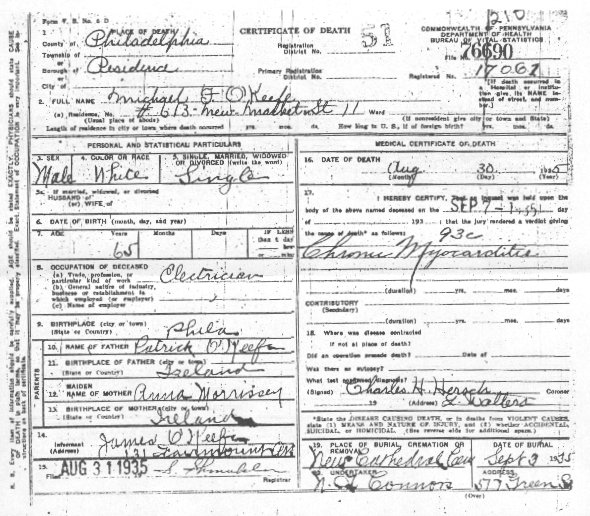 Form V. S. No. 5 D
CERTIFICATE OF DEATH
COMMONWEALTH OF PENNSYLVANIA
DEPARTMENT OF HEALTH
BUREAU OF VITAL STATISTICS
1. PLACE OF DEATH
County of Philadelphia
Township of
Borough of Residence
City of
Registration District No.
51
Primary Registration District No.
File No. 76690
Registered No. 17061
(If death occurred in a Hospital or institution give its NAME instead of street and number.)
2. FULL NAME Michael F O'Keefe
(a) Residence, No. # 613 New Market St 11 Ward
(Usual place of abode) (If nonresident give city or town and State)
Length of residence in city or town where death occurred yrs. mos. days. How long in U. S., if of foreign birth? yrs. mos. days
PERSONAL AND STATISTICAL PARTICULARS
3. SEX Male
4. COLOR OR RACE White
5. SINGLE, MARRIED, WIDOWED OR DIVORCED (write the word) Single
5a. If married, widowed, or divorced
HUSBAND of
(or) WIFE of
6. DATE OF BIRTH (month, day, and year)
7. AGE Years 65 Months Days If LESS than 1 day
8. OCCUPATION OF DECEASED
(a) Trade, profession, or particular kind of work Electrician
(b) General nature of industry, business or establishment in which employed (or employer)
(c) Name of employer
9. BIRTHPLACE (city or town)
(State or Country) Phila
PARENTS
10. NAME OF FATHER Patrick O'Keefe
11. BIRTHPLACE OF FATHER (city or town)
(State or Country) Ireland
12. MAIDEN NAME OF MOTHER Anna Morrissey
13. BIRTHPLACE OF MOTHER (city or town)
(State or Country) Ireland
14. Informant James O'Keefe
(Address) 131 Fairmount Ave
15. Filed AUG 31 1935
Registrar
MEDICAL CERTIFICATE OF DEATH
16. DATE OF DEATH Aug 30 1935
(Month) (Day) (Year)
17. I HEREBY CERTIFY, that an inquest was held upon the
body of the above named deceased on the SEP 7 - 1935 day
of 193 ; that the jury rendered a verdict giving
the cause of death as follows: 93c
Chronic Myocarditis
(duration) yrs. mos. days
CONTRIBUTORY
(Secondary)
(duration) yrs. mos. days
18. Where was disease contracted
if not at place of death?
Did an operation precede death? Date of
Was there an autopsy?
What test confirmed diagnosis?
(Signed) Charles H. Hersch Coroner
19 (Address) Walters
*State the DISEASE CAUSING DEATH, or in deaths from VIOLENT CAUSES, state (1) MEANS AND NATURE OF INJURY, and (2) whether ACCIDENTAL, SUICIDAL, or HOMICIDAL. (See reverse side for additional space.)
19. PLACE OF BURIAL, CREMATION OR REMOVAL New Cathedral Cem
DATE OF BURIAL Sept 3 1935
20. UNDERTAKER Connors
ADDRESS 577 Green St
(Over)